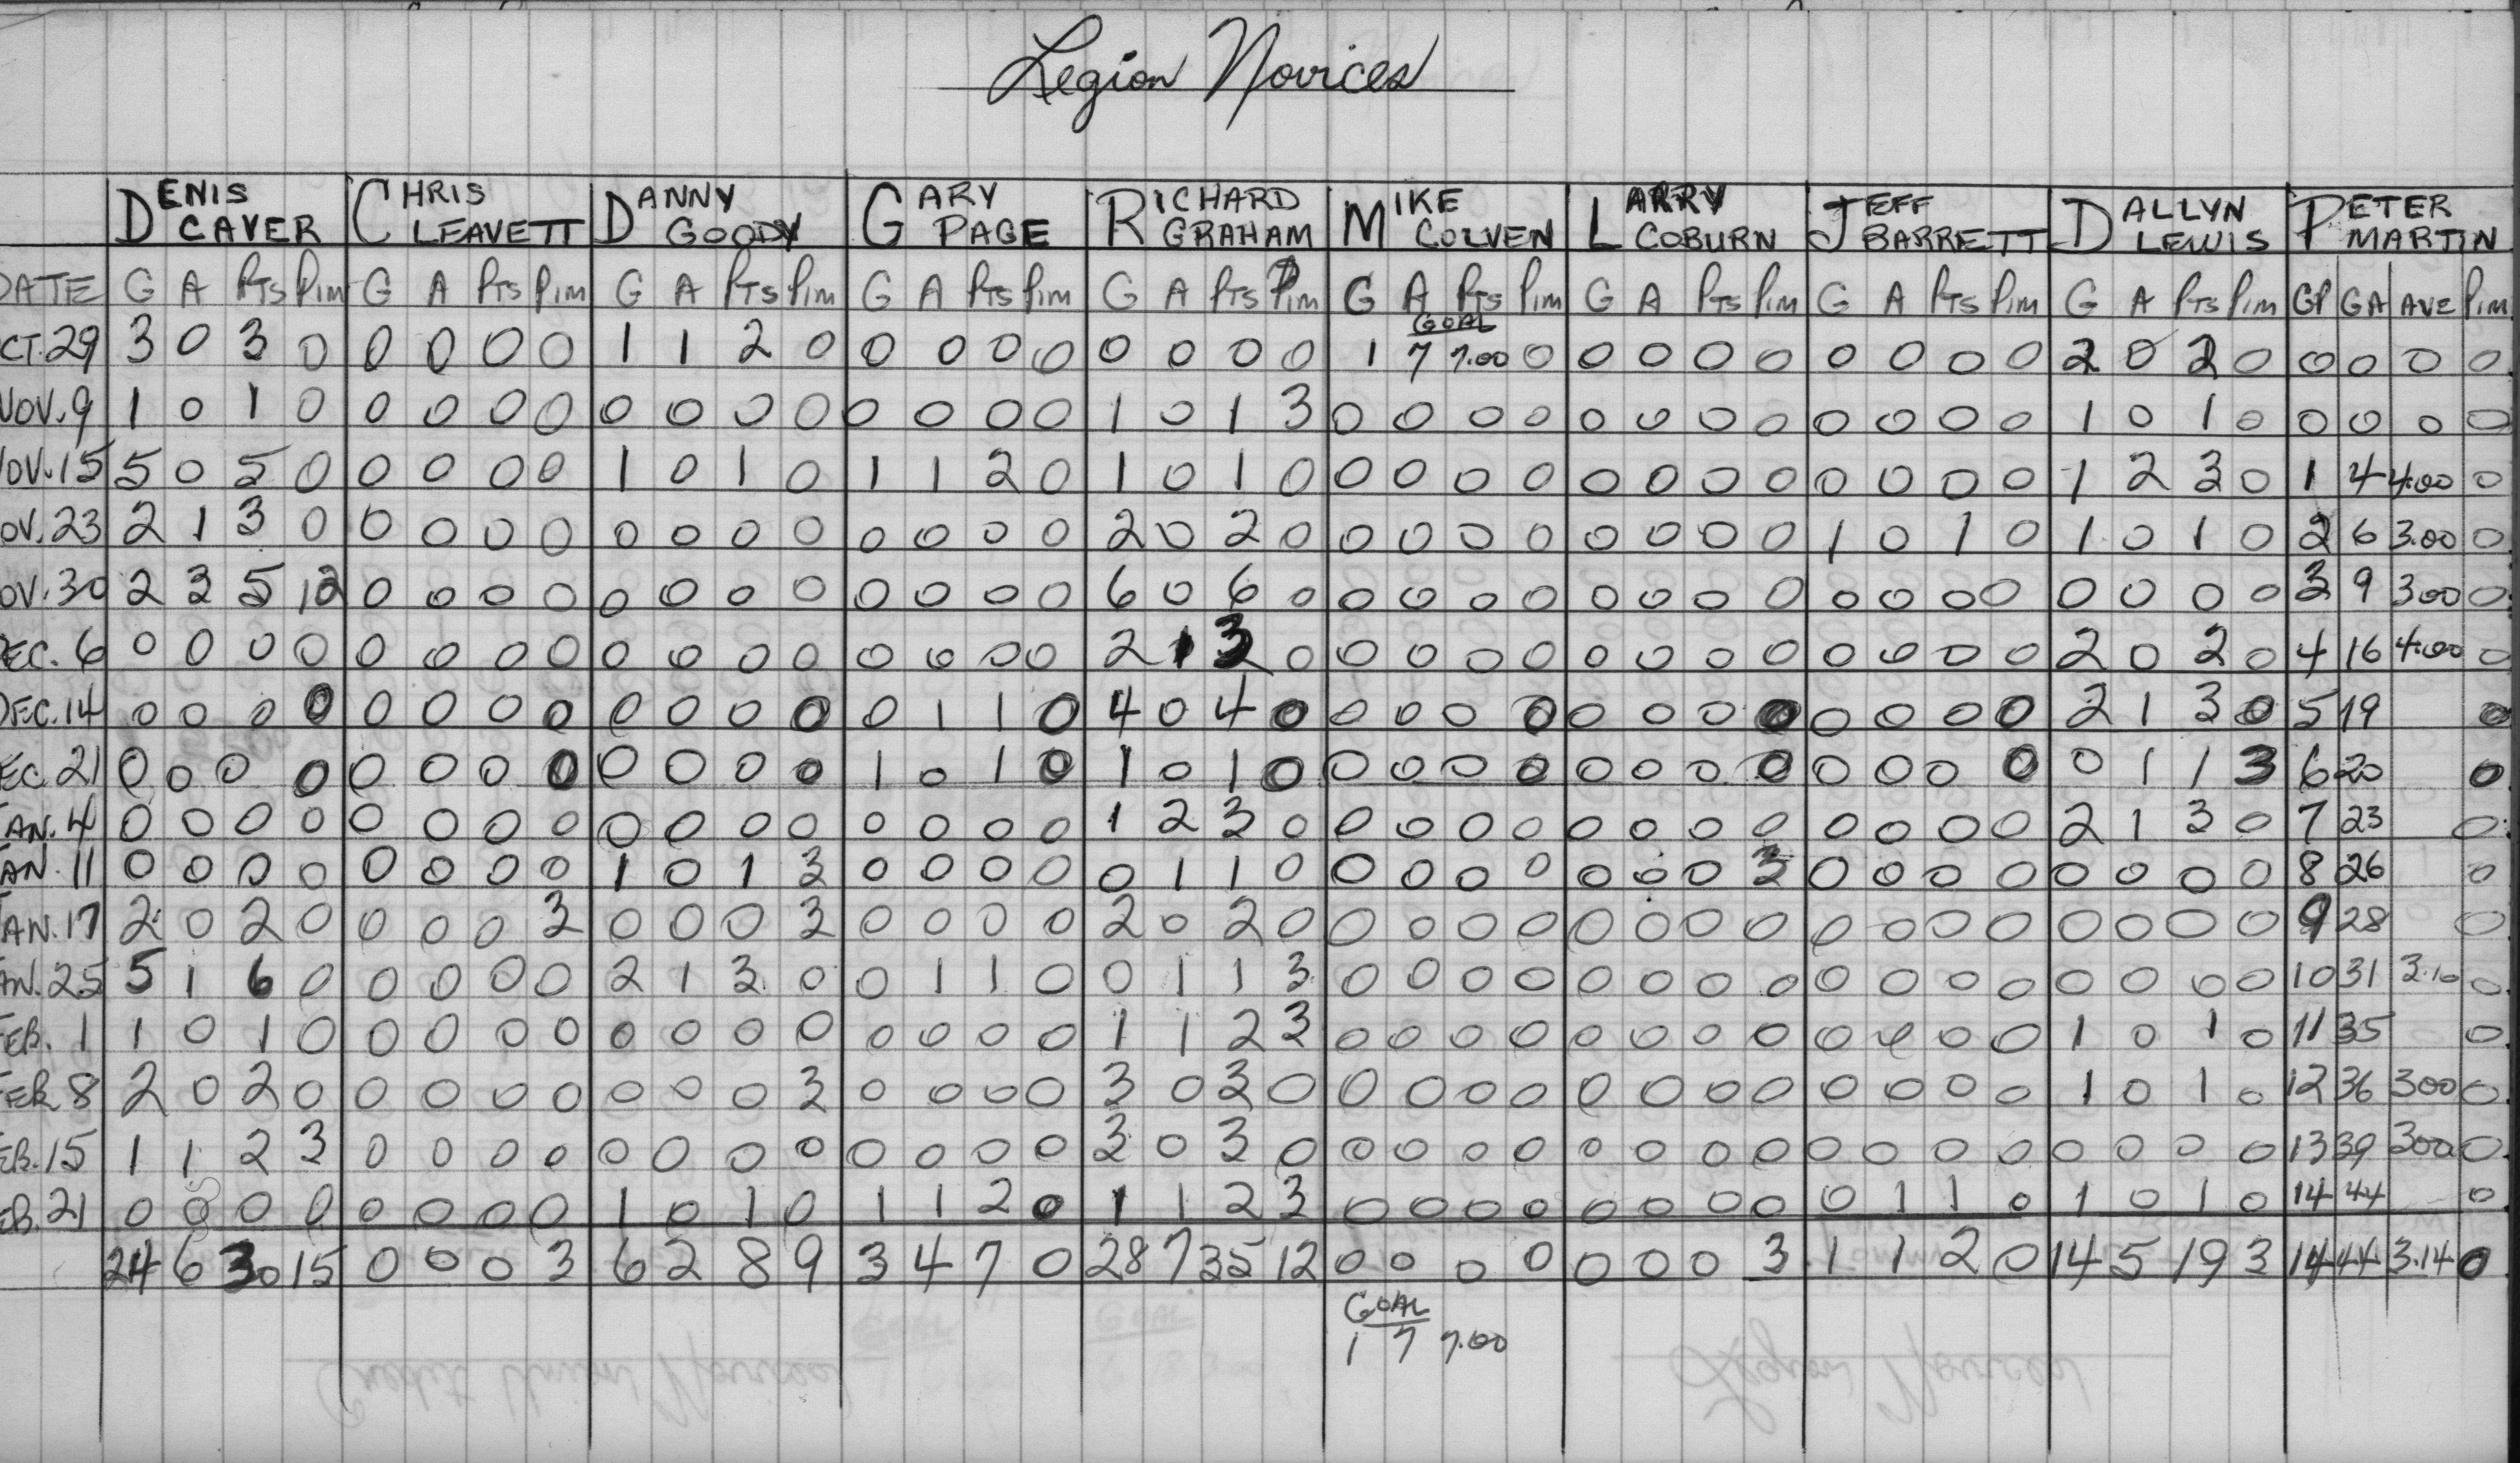 Legion Novices
DENIS CAVER CHRIS LEAVETT DANNY GOODY GARY PAGE RICHARD GRAHAM MIKE COLVEN LARRY COBURN JEFF BARRETT DALLYN LEWIS PETER MARTIN
DATE G A Pts Pim G A Pts Pim G A Pts Pim G A Pts Pim G A Pts Pim G A Pts Pim G A Pts Pim G A Pts Pim G A Pts Pim GP GA AVE Pim
GOAL
CT. 29 3 0 3 0 0 0 0 0 1 1 2 0 0 0 0 0 0 0 0 0 1 7 7.00 0 0 0 0 0 0 0 0 0 2 0 2 0 0 0 0 0
NOV. 9 1 0 1 0 0 0 0 0 0 0 0 0 0 0 0 0 1 0 1 3 0 0 0 0 0 0 0 0 0 0 0 0 1 0 1 0 0 0 0 0
NOV. 15 5 0 5 0 0 0 0 0 1 0 1 0 1 1 2 0 1 0 1 0 0 0 0 0 0 0 0 0 0 0 0 0 1 2 3 0 1 4 4.00 0
OV. 23 2 1 3 0 0 0 0 0 0 0 0 0 0 0 0 0 2 0 2 0 0 0 0 0 0 0 0 0 1 0 1 0 1 0 1 0 2 6 3.00 0
OV. 30 2 3 5 12 0 0 0 0 0 0 0 0 0 0 0 0 6 0 6 0 0 0 0 0 0 0 0 0 0 0 0 0 0 0 0 0 3 9 300 0
EC. 6 0 0 0 0 0 0 0 0 0 0 0 0 0 0 0 0 2 1 3 0 0 0 0 0 0 0 0 0 0 0 0 0 2 0 2 0 4 16 4.00 0
DEC. 14 0 0 0 0 0 0 0 0 0 0 0 0 0 1 1 0 4 0 4 0 0 0 0 0 0 0 0 0 0 0 0 0 2 1 3 0 5 19 0
EC. 21 0 0 0 0 0 0 0 0 0 0 0 0 1 0 1 0 1 0 1 0 0 0 0 0 0 0 0 0 0 0 0 0 0 1 1 3 6 20 0
JAN. 4 0 0 0 0 0 0 0 0 0 0 0 0 0 0 0 0 1 2 3 0 0 0 0 0 0 0 0 0 0 0 0 0 2 1 3 0 7 23 0
JAN. 11 0 0 0 0 0 0 0 0 1 0 1 3 0 0 0 0 0 1 1 0 0 0 0 0 0 0 0 3 0 0 0 0 0 0 0 0 8 26 0
JAN. 17 2 0 2 0 0 0 0 3 0 0 0 3 0 0 0 0 2 0 2 0 0 0 0 0 0 0 0 0 0 0 0 0 0 0 0 0 9 28 0
AN. 25 5 1 6 0 0 0 0 0 2 1 3 0 0 1 1 0 0 1 1 3 0 0 0 0 0 0 0 0 0 0 0 0 0 0 0 0 10 31 3.10 0
FEB. 1 1 0 1 0 0 0 0 0 0 0 0 0 0 0 0 0 1 1 2 3 0 0 0 0 0 0 0 0 0 0 0 0 1 0 1 0 11 35 0
FEB 8 2 0 2 0 0 0 0 0 0 0 0 3 0 0 0 0 3 0 3 0 0 0 0 0 0 0 0 0 0 0 0 0 1 0 1 0 12 36 300 0
EB. 15 1 1 2 3 0 0 0 0 0 0 0 0 0 0 0 0 3 0 3 0 0 0 0 0 0 0 0 0 0 0 0 0 0 0 0 0 13 39 300 0
EB. 21 0 0 0 0 0 0 0 0 1 0 1 0 1 1 2 0 1 1 2 3 0 0 0 0 0 0 0 0 0 1 1 0 1 0 1 0 14 44 0
24 6 30 15 0 0 0 3 6 2 8 9 3 4 7 0 28 7 35 12 0 0 0 0 0 0 0 3 1 1 2 0 14 5 19 3 14 44 3.14 0
GOAL
1 7 7.00